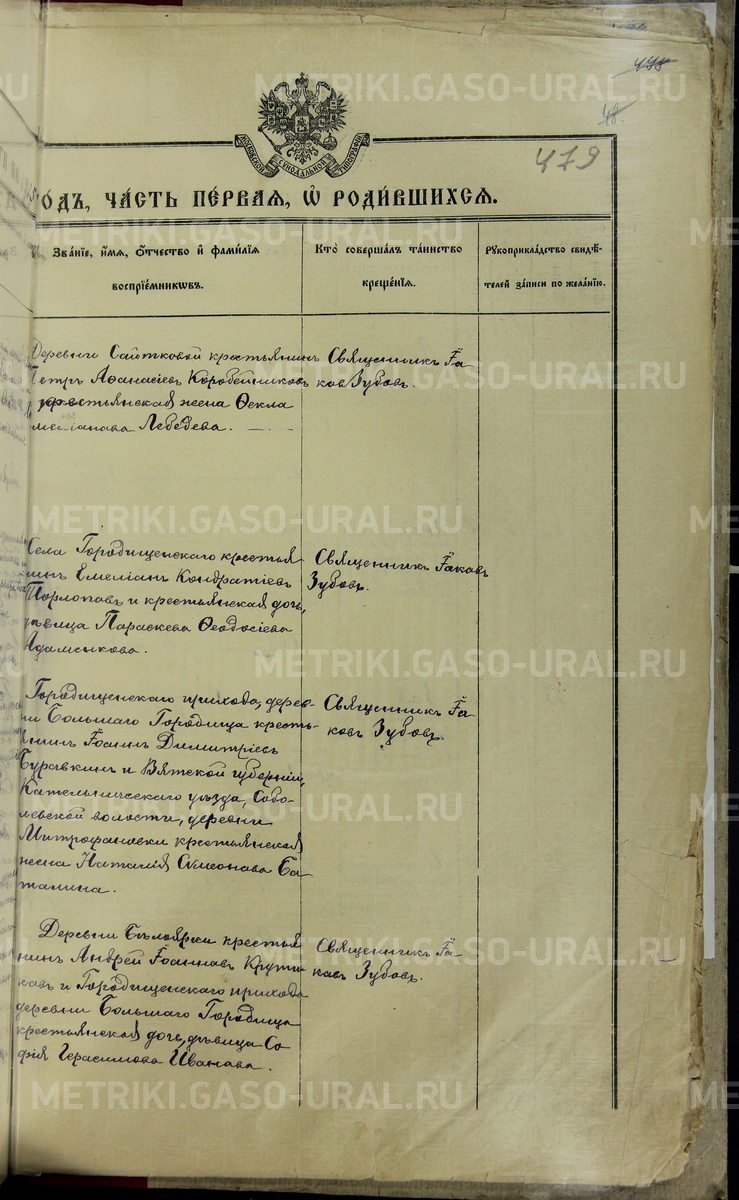 478
48.
479
МОСКОВСКОЙ СѴНОДАЛЬНОЙ ТИПОГРАФІИ
о́дъ, ча́сть пе́рваѧ, ѡ҆ роди́вшихсѧ.
Зва́нїе, и҆́мѧ, ѻ҆́тчество и҆ фами́лїѧ
воспрїе́мникѡвъ.
Кто̀ соверша́лъ та́инство
креще́нїѧ.
Рꙋкоприкла́дство свидѣ́-
телей за́писи по жела́нїю.
Деревни Сайтковой крестьянинъ
Петръ Аѳанасіевъ Коробейниковъ
крестьянская жена Ѳекла
меліанова Лебедева.
Священникъ Іа-
ковъ Зубовъ.
Села Городищенскаго крестья
нинъ Емеліанъ Кондратіевъ
Торлоповъ и крестьянская дочь,
дѣвица Параскева Ѳеодосіева
Адаменкова.
Священникъ Іаковъ
Зубовъ.
Городищенскаго прихода, дерев-
ни Большаго Городища кресть-
янинъ Іоаннъ Димитріевъ
Буравкинъ и Вятской губерніи,
Котельническаго уѣзда, Собо-
левской волости, деревни
Митрофановки крестьянская
жена Наталія Симеонова Ба
талина.
Священникъ Іа-
ковъ Зубовъ.
Деревни Бѣлоярки крестья
нинъ Андрей Іоанновъ Крути
ковъ и Городищенскаго прихода
деревни Большаго Городища
крестьянская дочь, дѣвица Со
фія Герасимова Иванова.
Священникъ Іа-
ковъ Зубовъ.
METRIKI.GASO-URAL.RU
METRIKI.GASO-URAL.RU
METRIKI.GASO-URAL.RU
METRIKI.GASO-URAL.RU
METRIKI.GASO-URAL.RU
METRIKI.GASO-URAL.RU
METRIKI.GASO-URAL.RU
METRIKI.GASO-URAL.RU